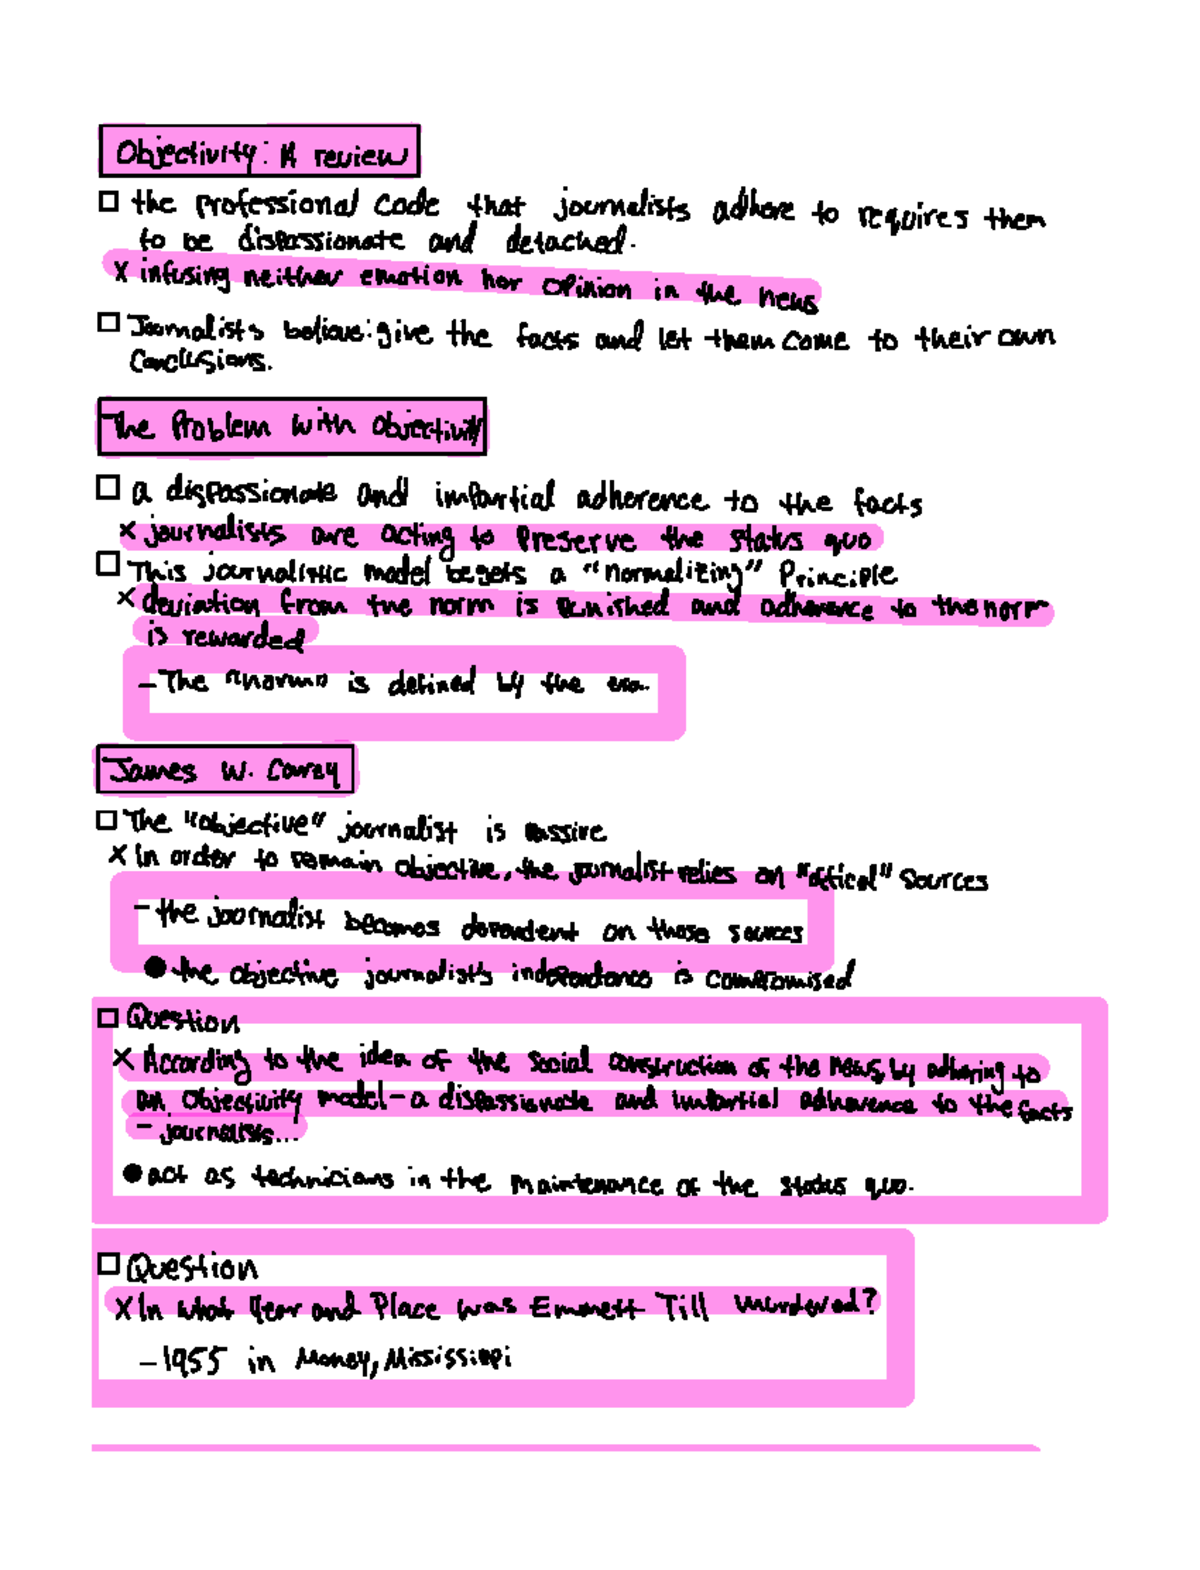 Objectivity: A review
□ the professional code that journalists adhere to requires them
to be dispassionate and detached.
x infusing neither emotion nor opinion in the news
□ Journalists believe: give the facts and let them come to their own
conclusions.
The Problem with Objectivity
□ a dispassionate and impartial adherence to the facts
x journalists are acting to preserve the status quo
□ This journalistic model begets a "normalizing" Principle
x deviation from the norm is punished and adherence to the norm
is rewarded
- The "norm" is defined by the era.
James W. Carey
□ The "objective" journalist is passive
x In order to remain objective, the journalist relies on "offical" Sources
- the journalist becomes dependent on those sources
● the objective journalist's independence is compromised
□ Question
x According to the idea of the social construction of the news, by adhering to
an objectivity model - a dispassionate and impartial adherence to the facts
- journalists...
● act as technicians in the maintenance of the status quo.
□ Question
x In what Year and Place was Emmett Till murdered?
- 1955 in Money, Mississippi